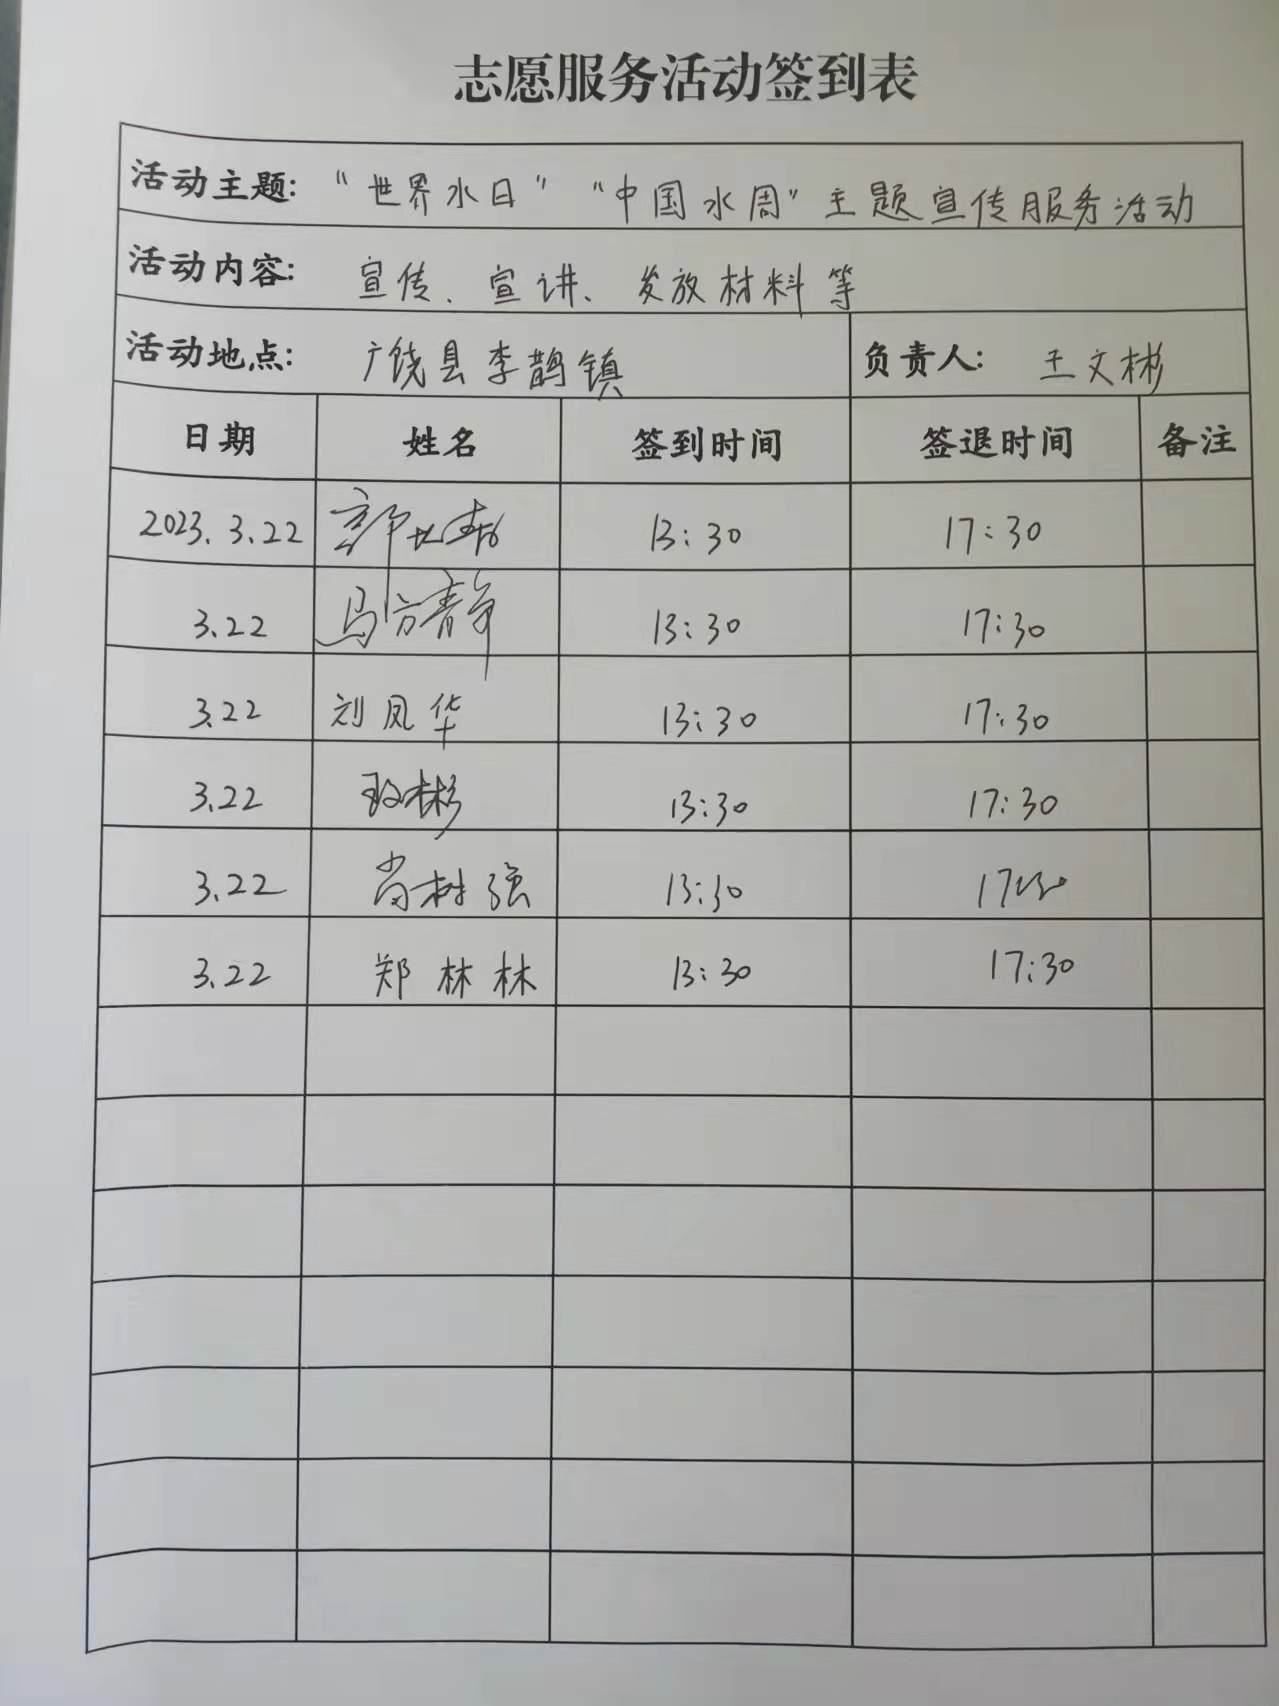 志愿服务活动签到表
活动主题: “世界水日” “中国水周”主题宣传服务活动
活动内容: 宣传、宣讲、发放材料等
活动地点: 广饶县李鹊镇 负责人: 王文彬
日期 姓名 签到时间 签退时间 备注
2023.3.22 13:30 17:30
3.22 马方静 13:30 17:30
3.22 刘凤华 13:30 17:30
3.22 13:30 17:30
3.22 尚树强 13:30 17:30
3.22 郑林林 13:30 17:30